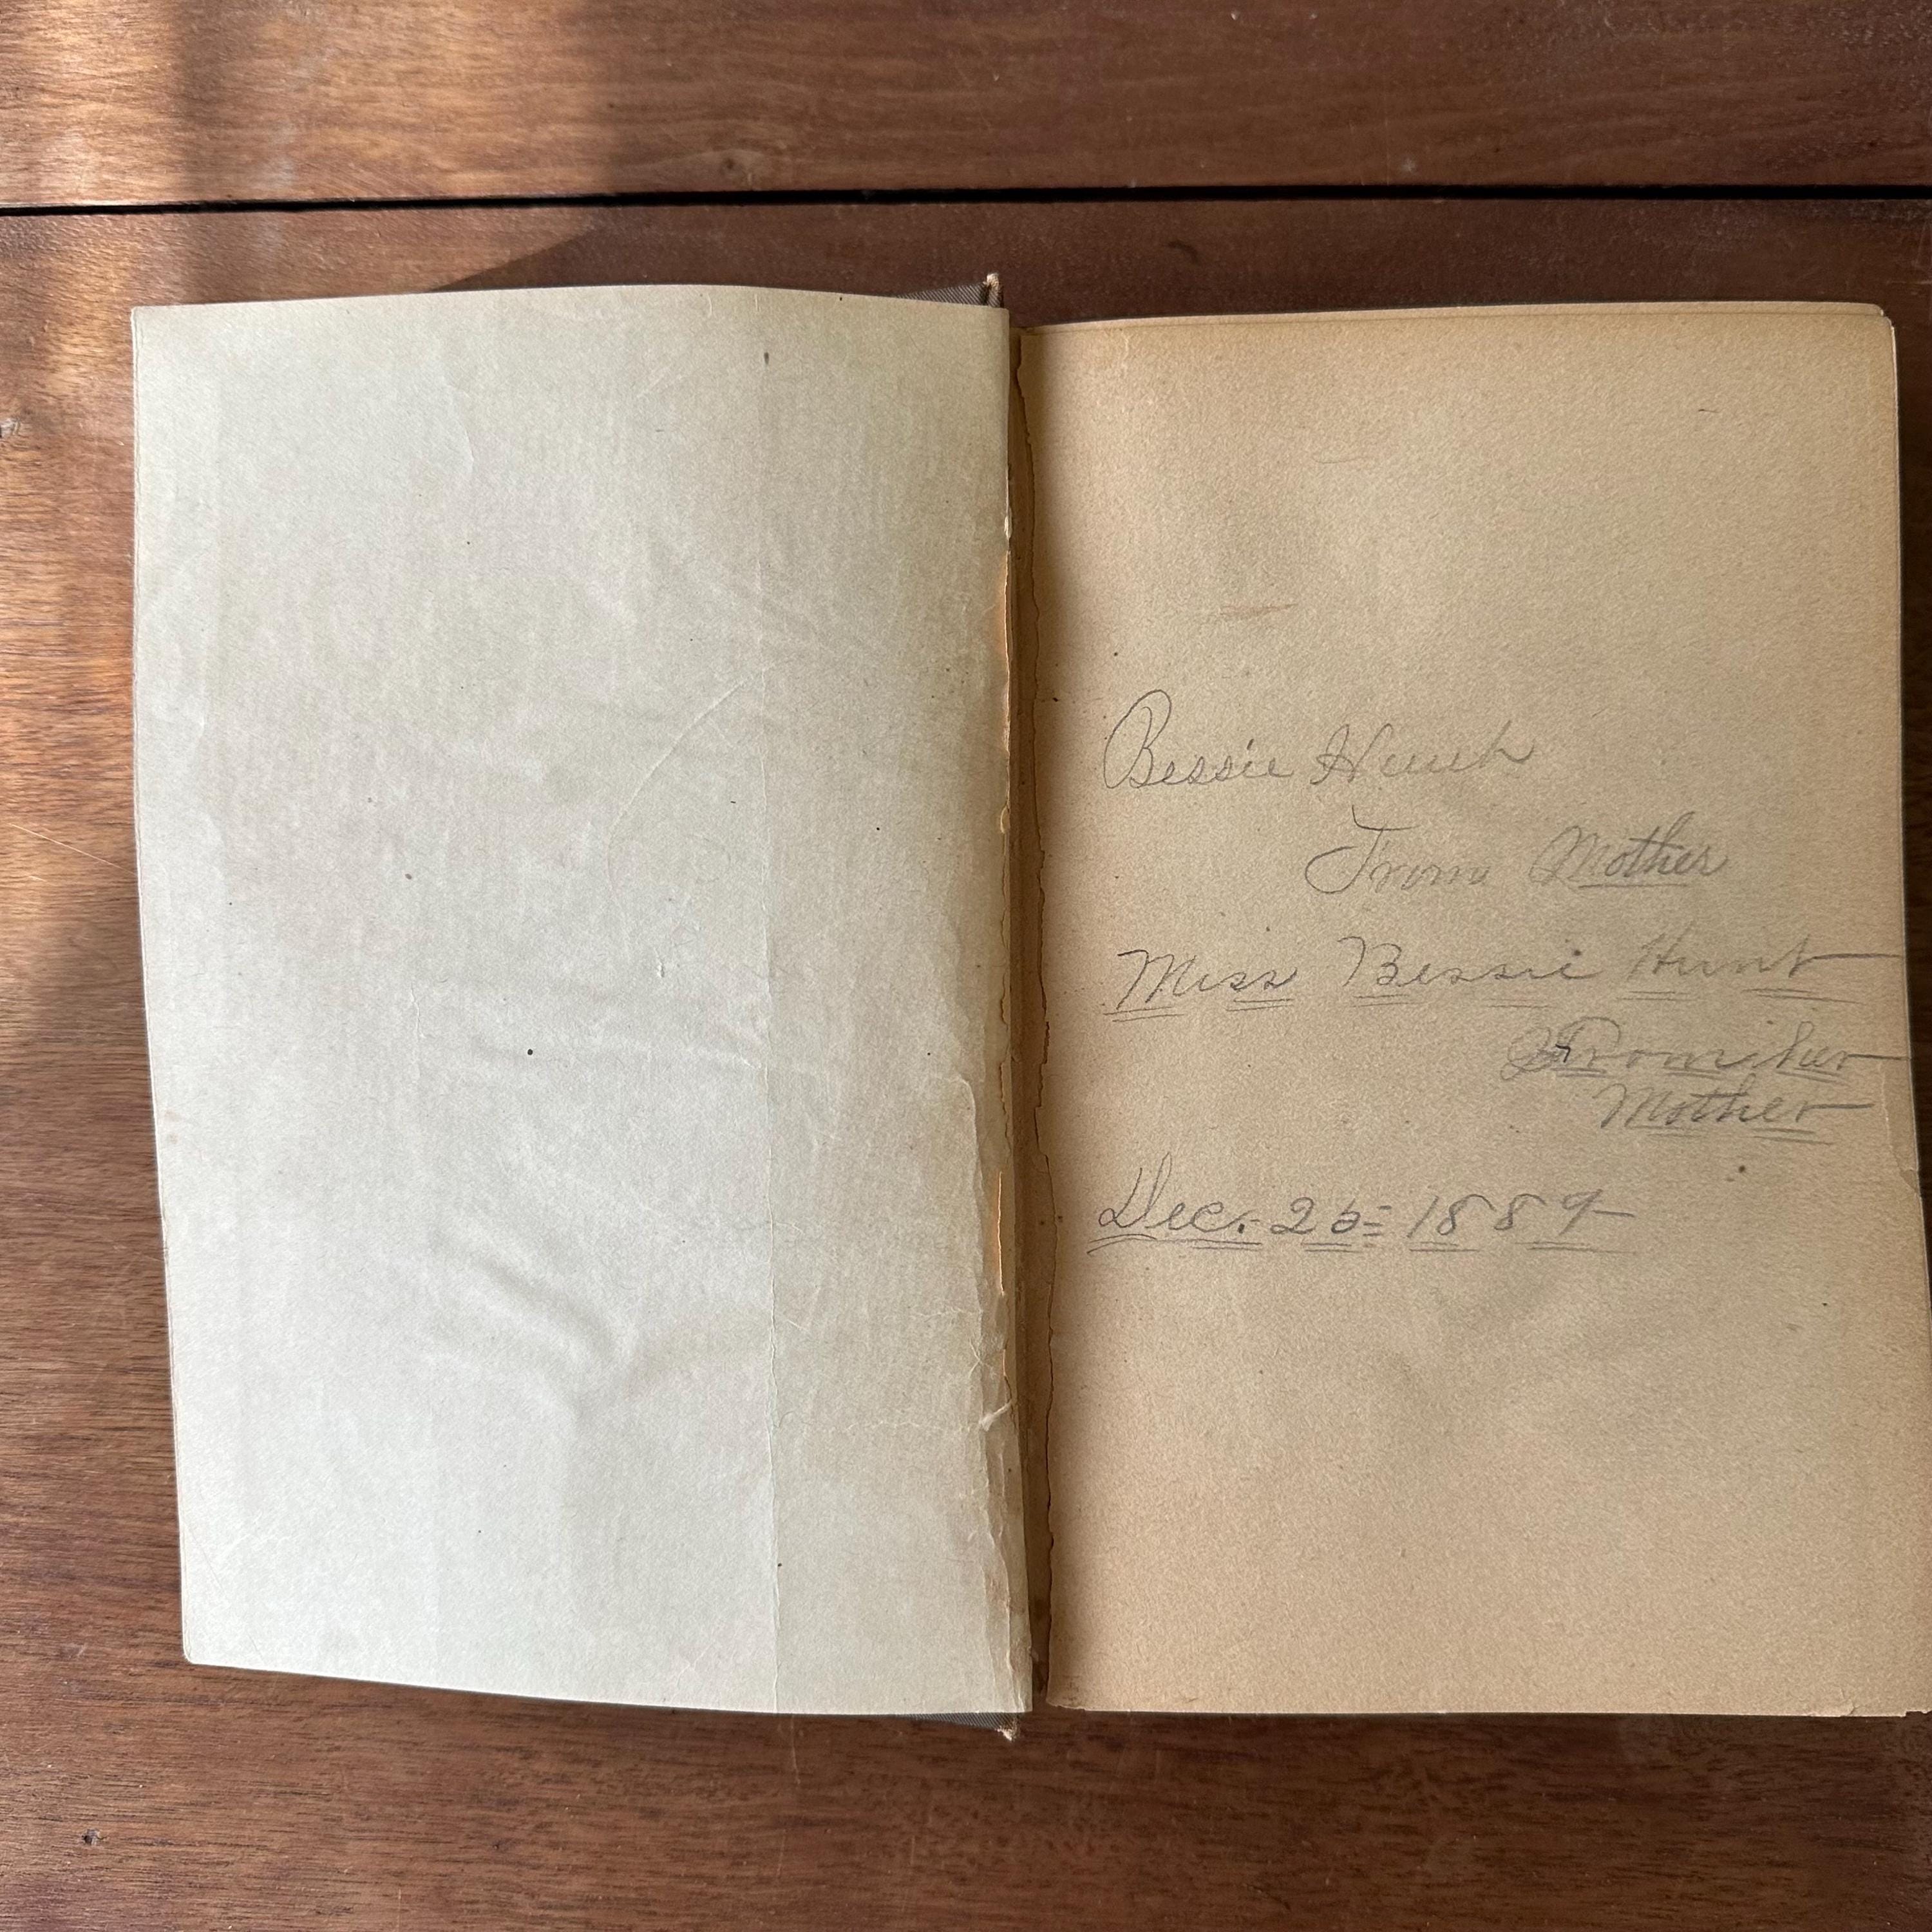 Bessie Hunt
From Mother
Miss Bessie Hunt
From her
Mother
Dec. 25= 1889